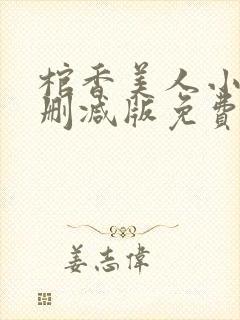 棺香美人小
删减版免費
姜志偉